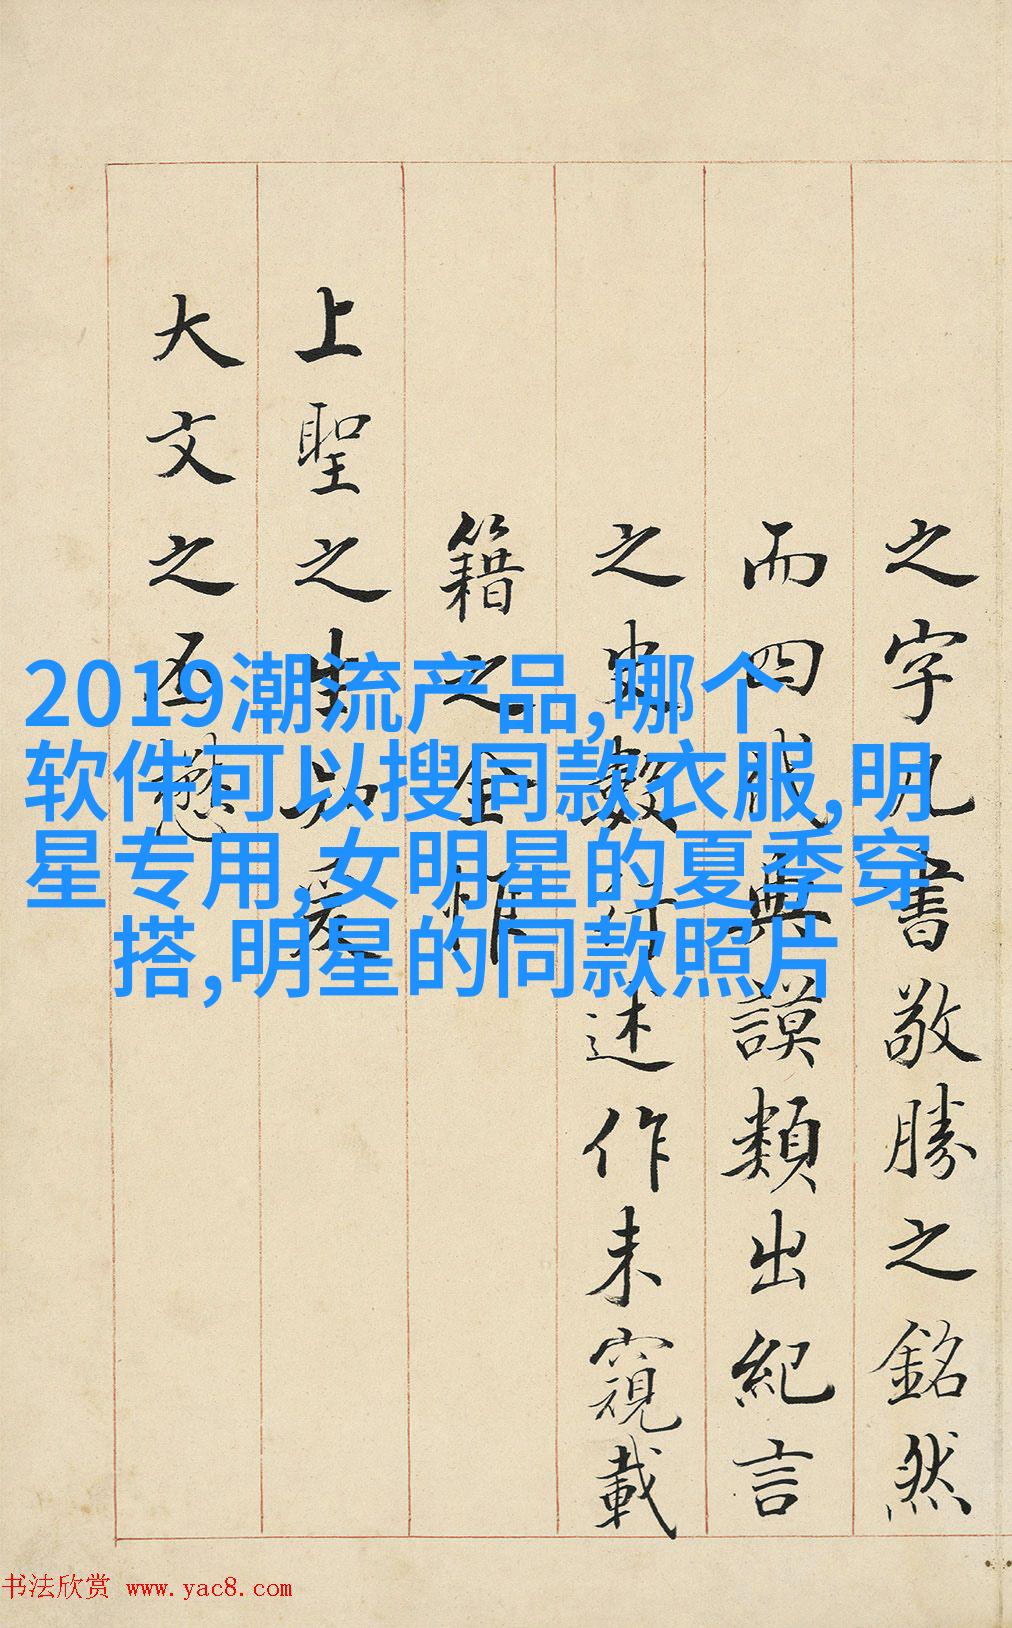 之字書敬勝之銘然
而四代典謨類出紀言
之史數行述作未窺載
籍之全惟
上聖之生知爰
大文之丕
2019潮流产品,哪个
软件可以搜同款衣服,明
星专用,女明星的夏季穿
搭,明星的同款照片
书法欣赏 www.yac8.com